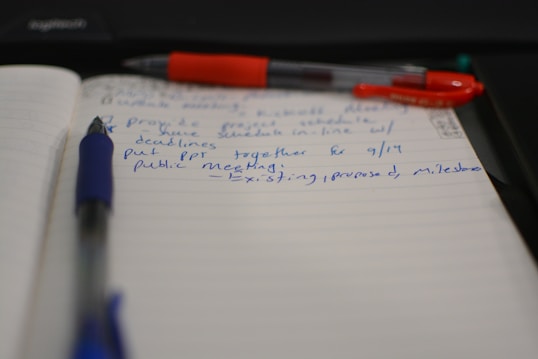 logitech
update meeting - Kickoff Meeting
provide project schedule
- have schedule in-line w/
deadlines
put PPT together for 9/19
public meeting:
- Existing, proposed, milestone